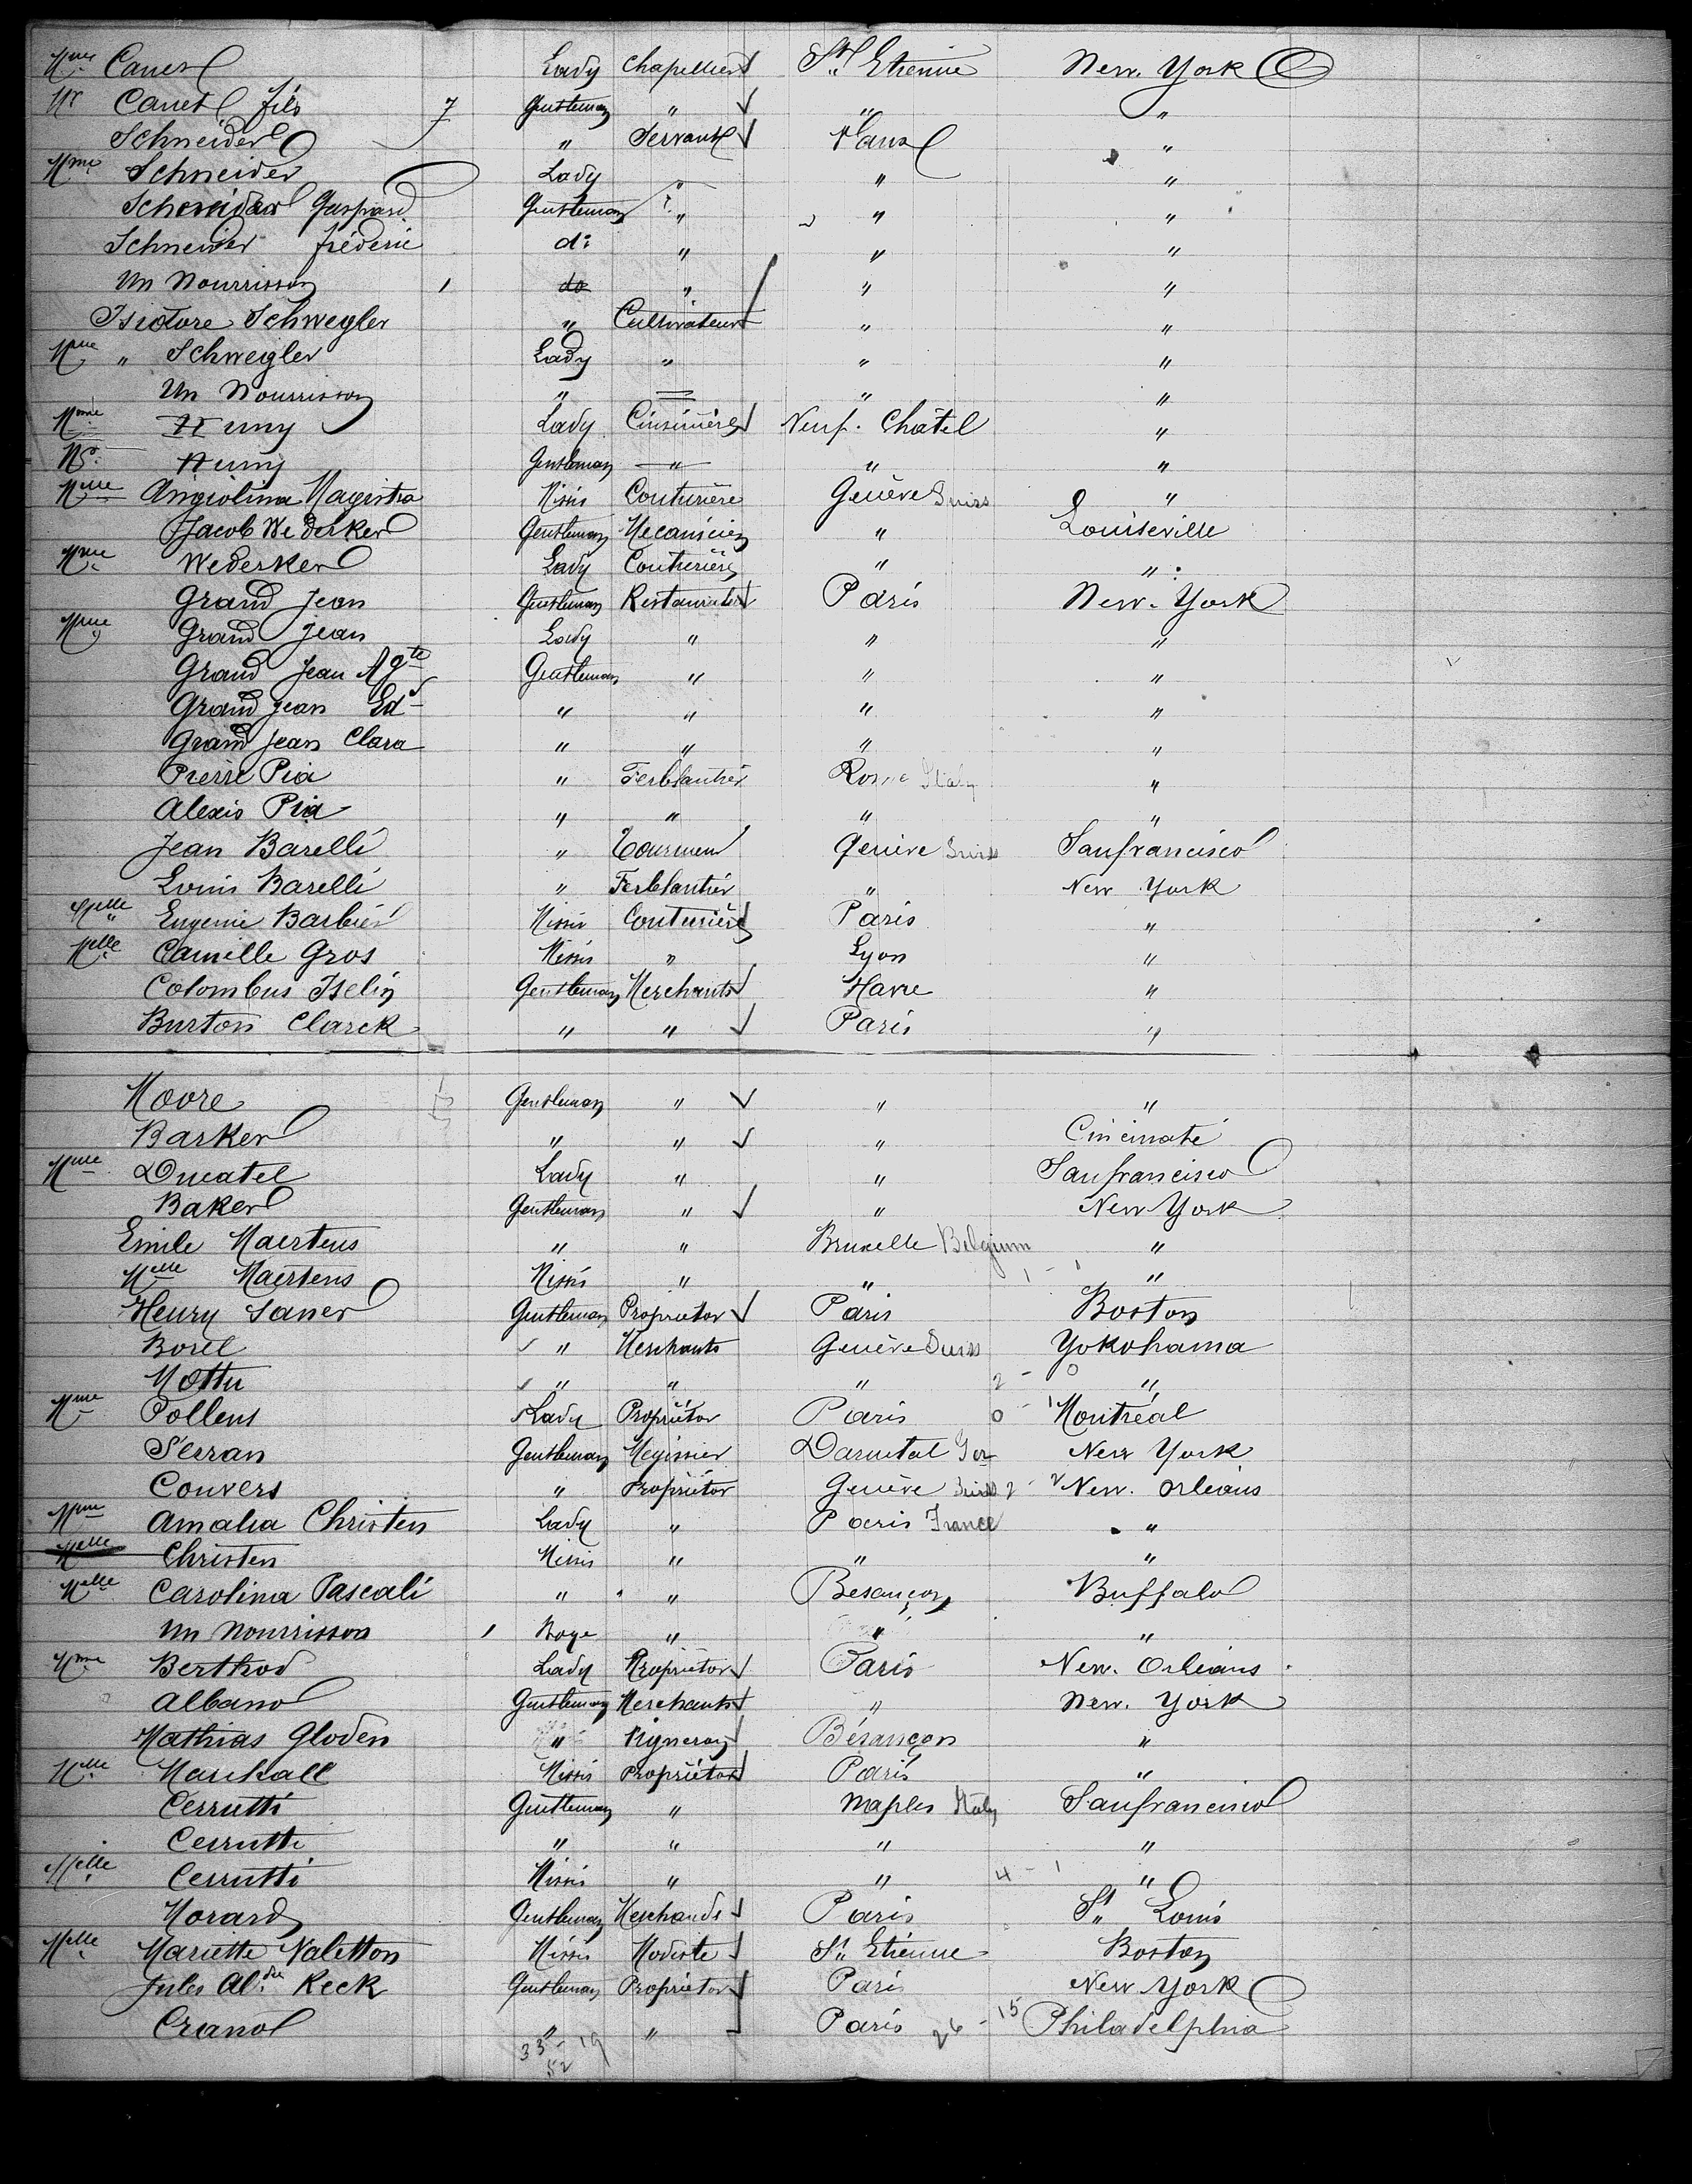 Mme Canet Lady Chapelliers St Etienne New. York
Mr Canet fils 7 Gentleman " " "
Schneider " Servant Paris "
Mme Schneider Lady " " "
Schneider Gaspard Gentleman " " "
Schneider fréderic do " " "
Un Nourrisson 1 do " " "
Isidore Schwegler " Cultivateur " "
Mme " Schwegler Lady " " "
Un Nourrisson " = " "
Mme Huny Lady Cuisinière Neuf. Châtel "
Mr. Huny Gentleman " " "
Melle Angiolina Magistra Missis Couturière Genève Suiss "
Jacob Wederker Gentleman Mecanicien " Louiseville
Mme Wederker Lady Couturière " "
Grand Jean Gentleman Restaurateur Paris New. York
Mme Grand Jean Lady " " "
Grand Jean Agte Gentleman " " "
Grand Jean Ed " " " "
Grand Jean Clara " " " "
Pierre Pia " Ferblantier Rome Italy "
Alexis Pia " " " "
Jean Barelli " Tourneur Genève Suiss Sanfrancisco
Louis Barelli " Ferblantier " New York
Melle Eugenie Barbier Missis Couturière Paris "
Melle Camille Gros Missis " Lyon "
Colombus Iselin Gentleman Merchants Havre "
Burton Clarck " " Paris "
Moore Gentleman " " "
Barker " " " Cincinnati
Mme Ducatel Lady " " Sanfrancisco
Baker Gentleman " " New York
Emile Maertens " " Bruxelle Belgium "
Melle Maertens Missis " " 1 - 1 "
Henry Saner Gentleman Proprietor Paris Boston
Borel " Merchants Genève Suiss Yokohama
Mottu " " " 2 - 0 "
Mme Pollens Lady Propriétor Paris 0 - 1 Montréal
Serran Gentleman Megissier Darnetal Ger New York
Convers " Propriétor Genève Suiss 2 - 2 New. Orleans
Mme Amalia Christen Lady " Paris France "
Melle Christen Missis " " "
Melle Carolina Pascali " " Besançon Buffalo
Un Nourrisson 1 Boye " " "
Mme Berthod Lady Propriétor Paris New. Orleans
Albano Gentleman Merchants " New. York
Mathias Gloden " Vigneron Bésançon "
Melle Marshall Missis Propriétor Paris "
Cerrutti Gentleman " Naples Italy Sanfrancisco
Cerrutti " " " "
Melle Cerrutti Missis " " 4 - 1 "
Morard Gentleman Merchands Paris St Louis
Melle Mariette Valetton Missis Modiste St Etienne Boston
Jules Aldre Keck Gentleman Propriétor Paris New York
Cranol " " Paris 26 - 15 Philadelphia
33 - 19
52